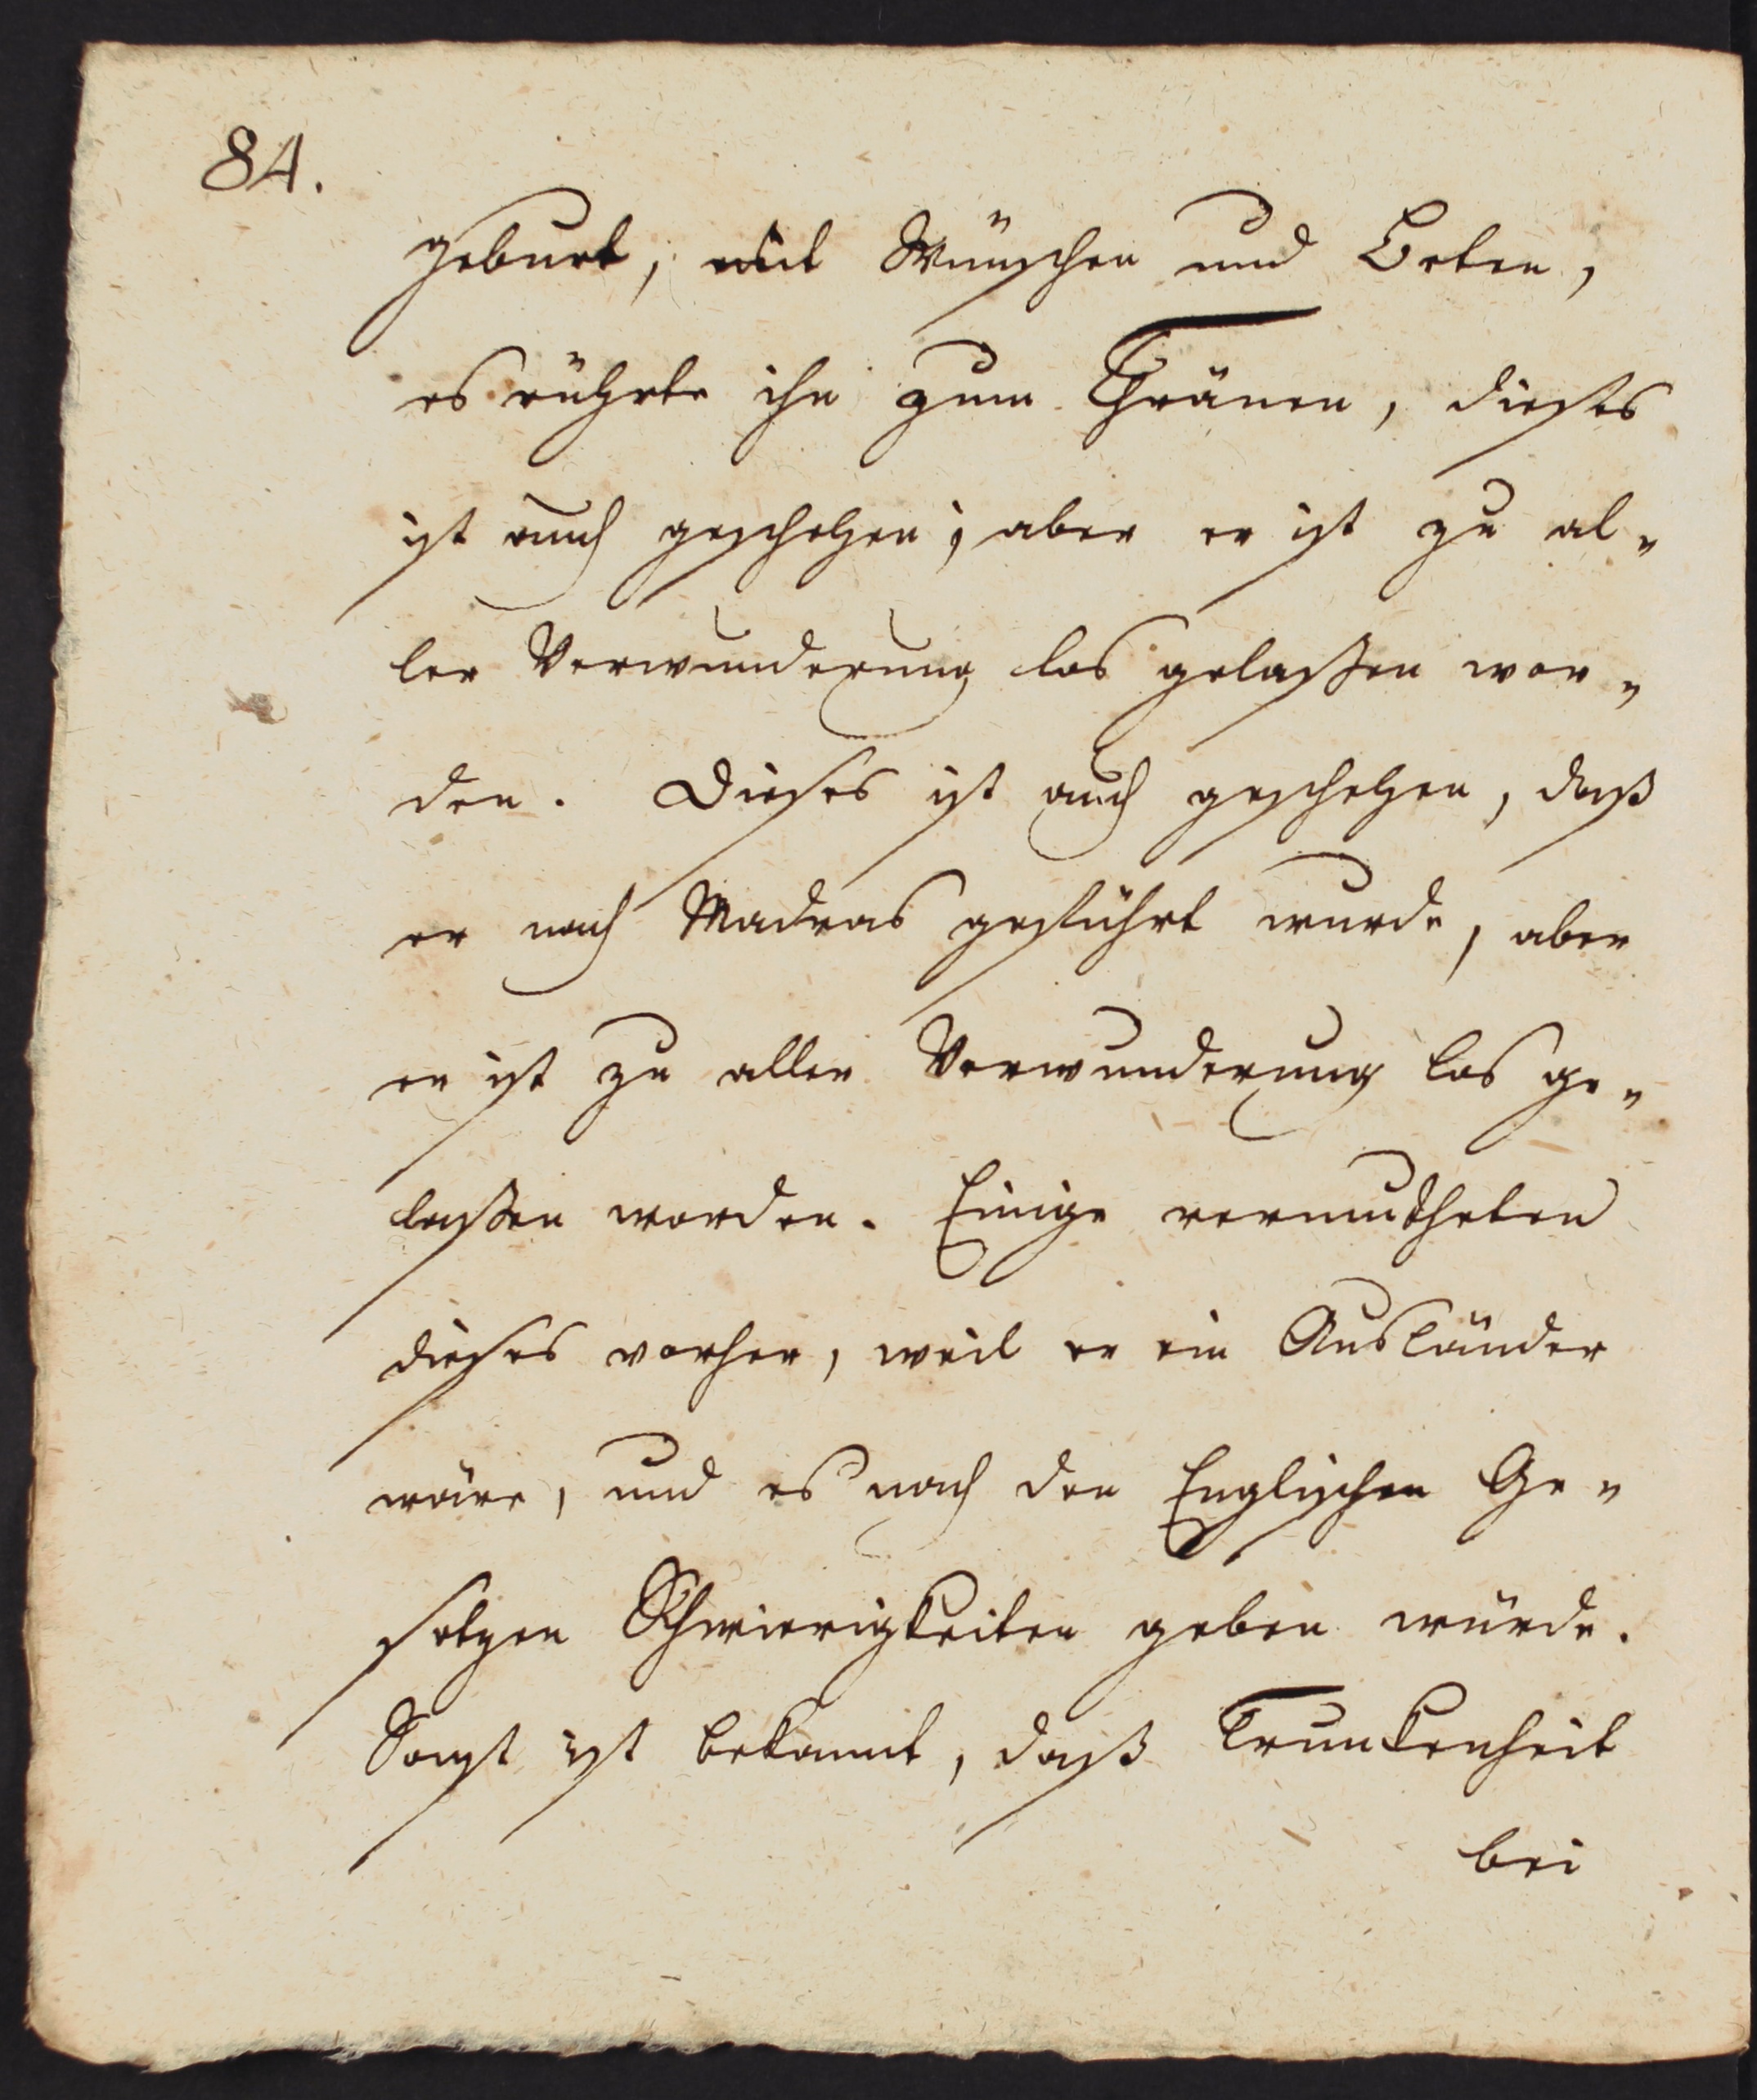 84.
geburt, mit Wünschen und Beten,
es rührte ihn zum Thränen, dieses
ist auch geschehen; aber er ist zu al„
ler Verwunderung los gelaßen wor„
den. Dieses ist auch geschehen, daß
er nach Madras geführt wurde, aber
er ist zu aller Verwunderung los ge„
laßen worden. Einige vermutheten
dieses vorher, weil er ein Ausländer
wäre, und es nach den Englischen Ge„
setzen Schwierigkeiten geben würde.
Sonst ist bekannt, daß Trunkenheit
bei